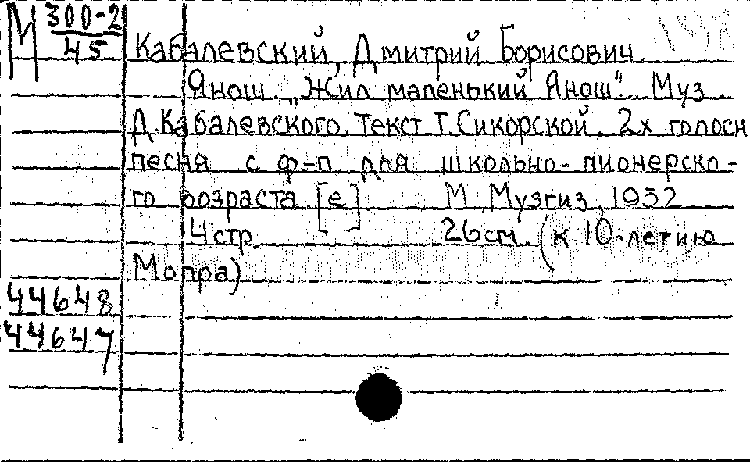 М 300-2
45
Кабалевский, Дмитрий Борисович
Янош. "Жил маленький Янош". Муз.
Д. Кабалевского. Текст Т. Сикорской. 2х голосн
песня с ф-п для школьно-пионерско-
го возраста [е] М. Музгиз, 1932
4 стр. 26 см. (к 10-летию
Мопра)
44648
44647